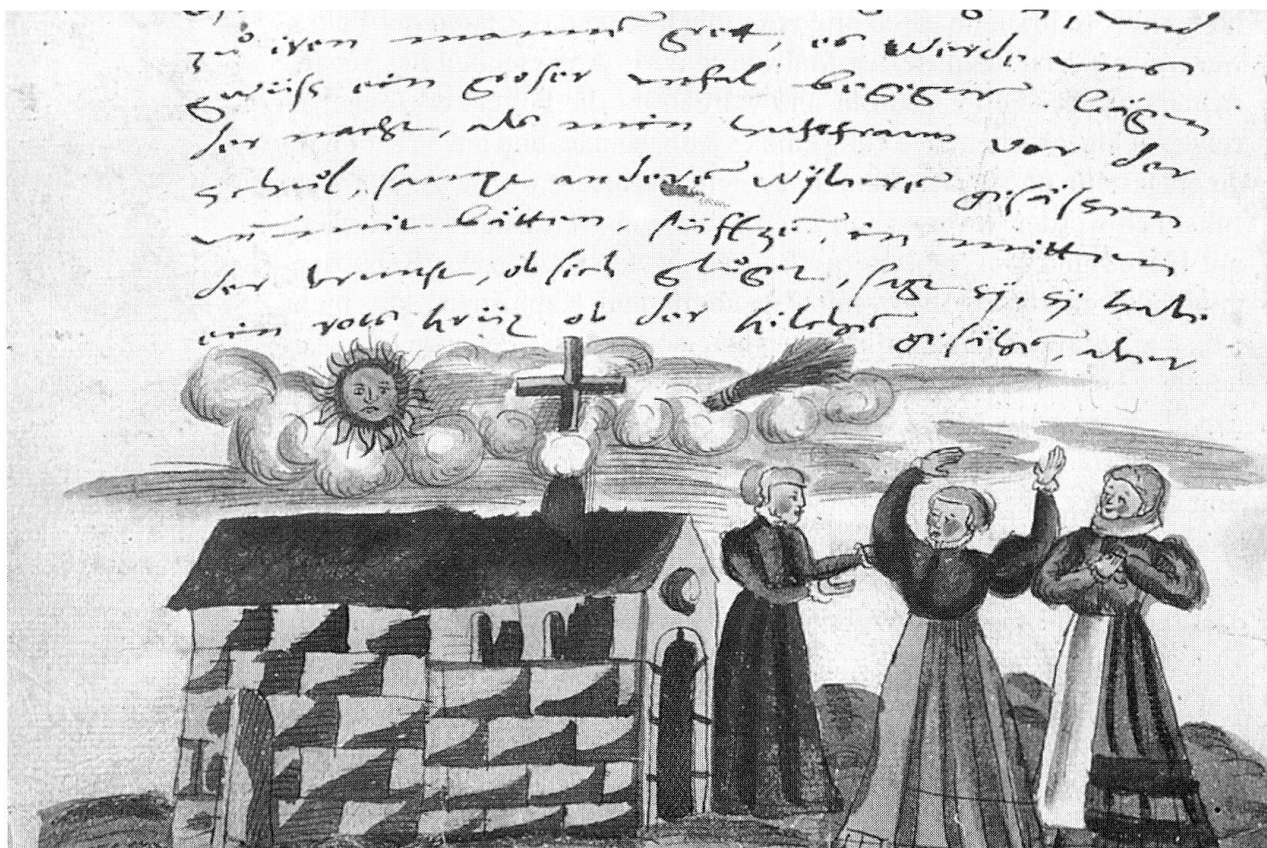 zů iren mann gret, es werde uns
gwüss ein groser unfal begegnen
der nacht, als min husfrauw vor der
schůl, sampt andere wybere gesässen
und mit bätten, süffzen, in mitten
der brunst, ob sich glůget, sagt sy, sy habe
ein rots krütz ob der kilchen gesähen, aber